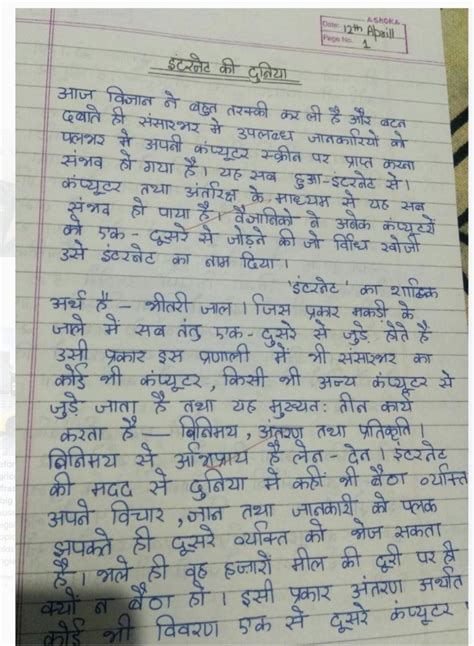 ASAOKA
Date: 12th Aprill
Page No. 1
इंटरनेट की दुनिया
आज विज्ञान ने बहुत तरक्की कर ली है और बटन
दबाते ही संसारभर मे उपलब्ध जानकारियों को
पलभर मे अपनी कंप्यूटर स्क्रीन पर प्राप्त करना
संभव हो गया है। यह सब हुआ-इंटरनेट से।
कंप्यूटर तथा अंतरिक्ष के माध्यम से यह सब
संभव हो पाया है। वैज्ञानिको ने अनेक कंप्यूटरों
को एक-दूसरे से जोड़ने की जो विधि खोजी
उसे इंटरनेट का नाम दिया।
'इंटरनेट' का शाब्दिक
अर्थ है – भीतरी जाल। जिस प्रकार मकडी के
जाले में सब तंतु एक-दुसरे से जुडे होते है
उसी प्रकार इस प्रणाली में भी संसारभर का
कोई भी कंप्यूटर, किसी भी अन्य कंप्यूटर से
जुड़े जाता है तथा यह मुख्यत: तीन कार्य
करता है — विनिमय, अंतरण तथा प्रतिकृति।
विनिमय से अभिप्राय है लेन-देन। इंटरनेट
की मदद से दुनिया में कहीं भी बैठा व्यक्ति
अपने विचार, ज्ञान तथा जानकारी को पलक
झपकते ही दूसरे व्यक्ति को भेज सकता
है। भले ही वह हजारों मील की दूरी पर ही
क्यों न बैठा हो। इसी प्रकार अंतरण अर्थात
कोई भी विवरण एक से दूसरे कंप्यूटर